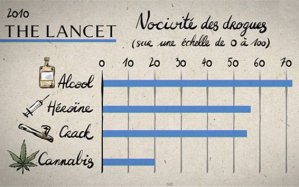 2010
THE LANCET
Nocivité des drogues
(sur une échelle de 0 à 100)
0 10 20 30 40 50 60 70
Alcool
Héroïne
Crack
Cannabis